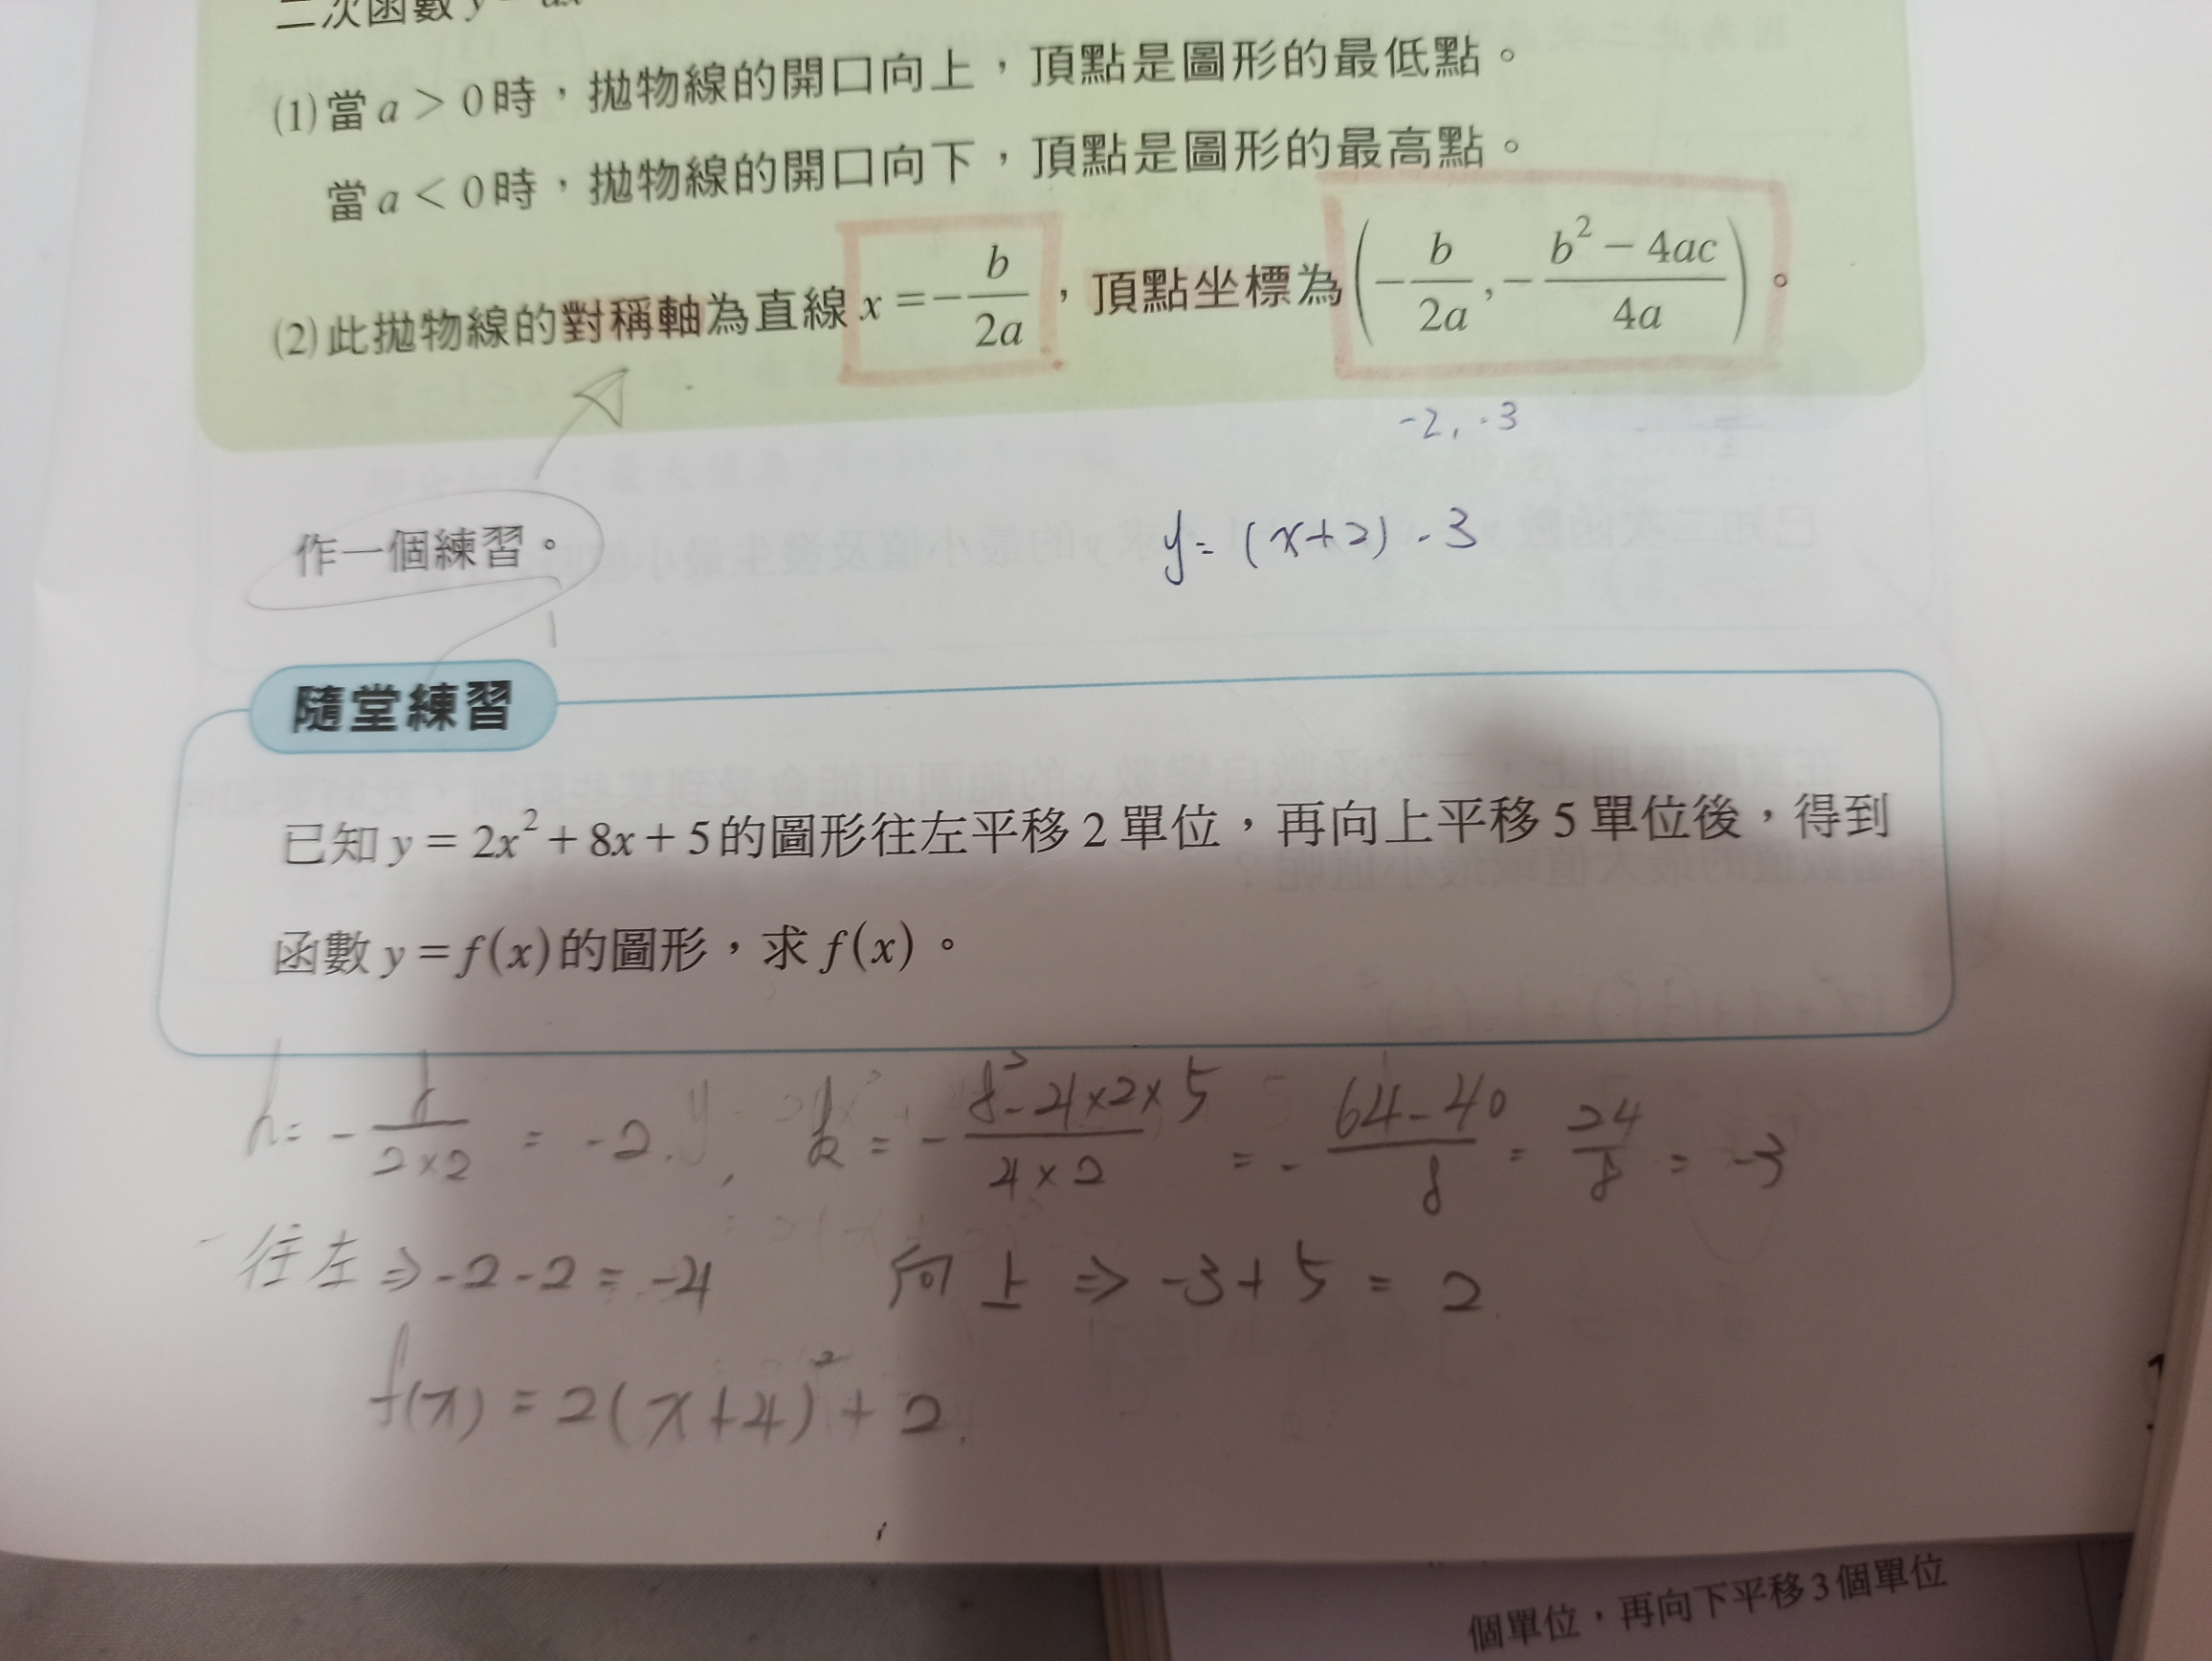 二次函數 y = ax
(1) 當 a > 0 時，拋物線的開口向上，頂點是圖形的最低點。
當 a < 0 時，拋物線的開口向下，頂點是圖形的最高點。
(2) 此拋物線的對稱軸為直線 x = -b/2a，頂點坐標為 (-b/2a, -(b² - 4ac)/4a)。
-2, -3
作一個練習。
y = (x+2) - 3
隨堂練習
已知 y = 2x² + 8x + 5 的圖形往左平移 2 單位，再向上平移 5 單位後，得到
函數 y = f(x) 的圖形，求 f(x)。
h = -8/(2×2) = -2, k = -(8²-4×2×5)/(4×2) = -(64-40)/8 = 24/8 = -3
往左 ⇒ -2-2 = -4 向上 ⇒ -3+5 = 2
f(x) = 2(x+4)² + 2
個單位，再向下平移 3 個單位